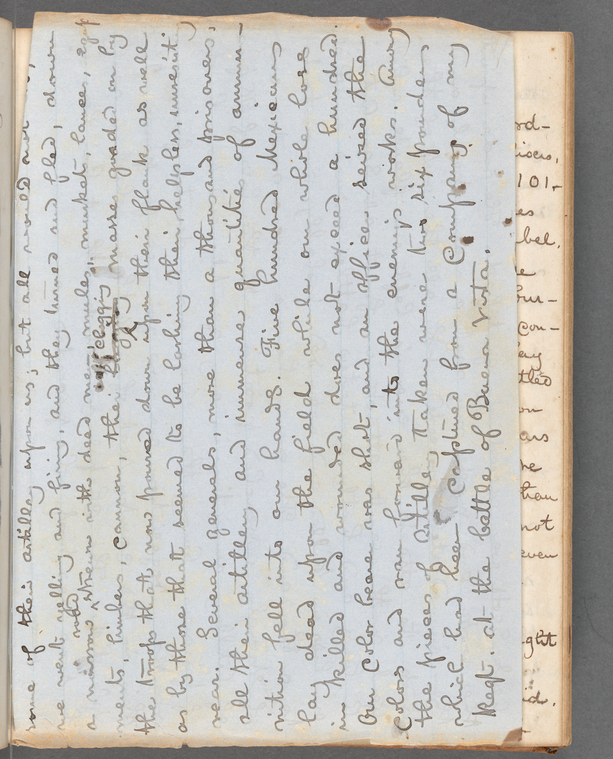 some of their artillery upon us, but all would not
we went yelling and firing, and they turned and fled, down
a narrow road strewn with dead men, mules, muskets, lances,
ments, limbers, cannon, their masses goaded on by
the troops that now poured down upon their flank as well
as by those that seemed to be lashing their helpless,
rear. Several generals, more than a thousand prisoners,
all their artillery and immense quantities of ammu-
nition fell into our hands. Five hundred Mexicans
lay dead upon the field while our whole loss
in killed and wounded does not exceed a hundred.
Our color bearer was shot, and an officer seized the
Colors and ran forward into the enemy's works. Among
the pieces of Artillery taken were two six pounders
which had been captured from a Company of my
Regt. at the battle of Buena Vista.
101-
bel,
con-
ay
on
than
not
even
ght